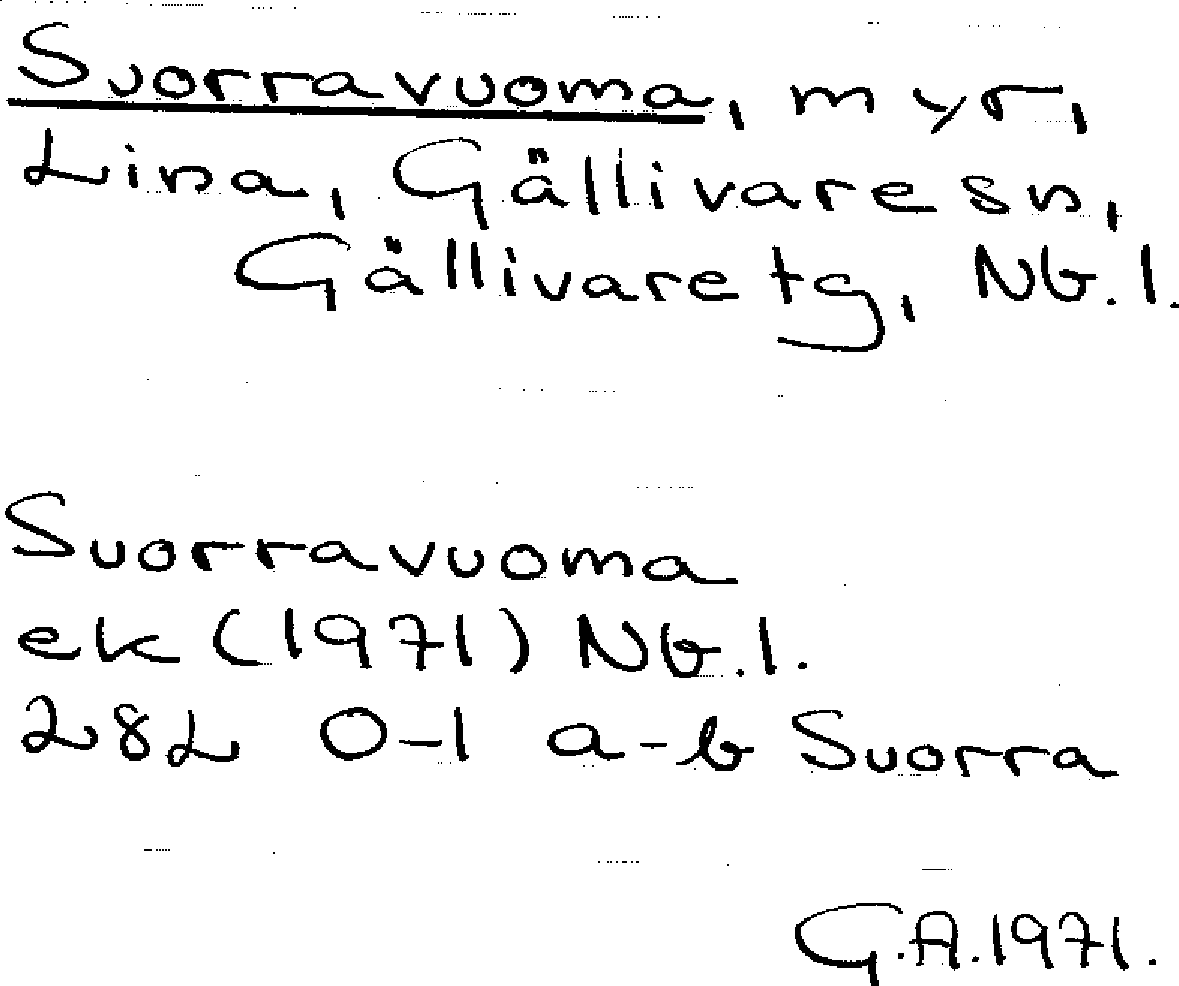 Suorravuoma, myr,
Lina, Gällivare sn,
Gällivare tg, Nb. l.
Suorravuoma
ek (1971) Nb. l.
28L 0-1 a-b Suorra
G.A. 1971.